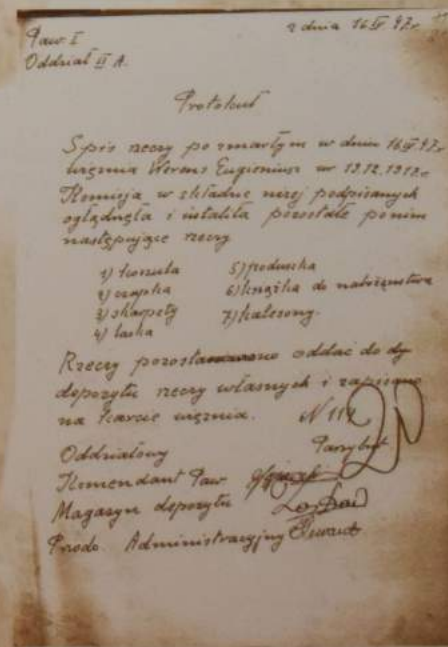 Paw I z dnia 16 IV 47.r.
Oddział II A.
Protokuł
Spis rzeczy po zmarłym w dniu 16 IV 47.r
więznia Werens Eugieniusz ur 19.12.1912.r.
Komisja w składzie niżej podpisanych
oglądnęła i ustaliła pozostałe ponim
następujące rzeczy
1) koszula 5) poduszka
2) czapka 6) książka do nabożeństwa
3) skarpety 7) kalesony.
4) laska
Rzeczy pozostawiono oddać do dy
depozytu rzeczy własnych i zapisano
na karcie więznia. N 112
Oddziałowy
Komendant Paw
Magazyn depozytu
Prodo. Administracyjny